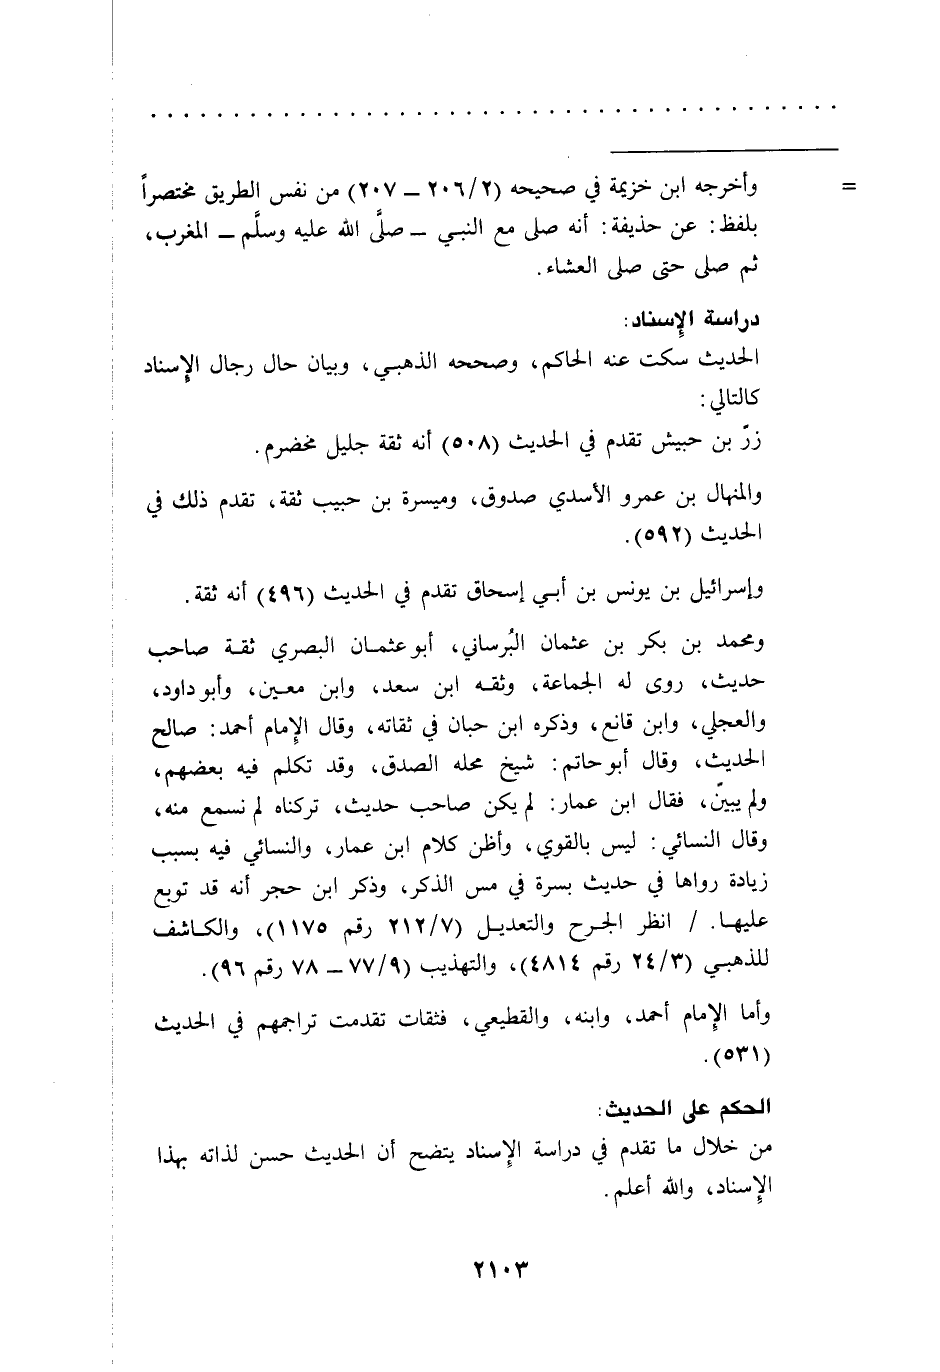 = وأخرجه ابن خزيمة في صحيحه (٢٠٦/٢ ـ ٢٠٧) من نفس الطريق مختصراً
بلفظ: عن حذيفة: أنه صلى مع النبي ـ صلَّى الله عليه وسلَّم ـ المغرب،
ثم صلى حتى صلى العشاء.
دراسة الإسناد:
الحديث سكت عنه الحاكم، وصححه الذهبي، وبيان حال رجال الإسناد
كالتالي:
زرّ بن حبيش تقدم في الحديث (٥٠٨) أنه ثقة جليل مخضرم.
والمنهال بن عمرو الأسدي صدوق، وميسرة بن حبيب ثقة، تقدم ذلك في
الحديث (٥٩٢).
وإسرائيل بن يونس بن أبي إسحاق تقدم في الحديث (٤٩٦) أنه ثقة.
ومحمد بن بكر بن عثمان البُرساني، أبو عثمان البصري ثقة صاحب
حديث، روى له الجماعة، وثقه ابن سعد، وابن معين، وأبو داود،
والعجلي، وابن قانع، وذكره ابن حبان في ثقاته، وقال الإمام أحمد: صالح
الحديث، وقال أبو حاتم: شيخ محله الصدق، وقد تكلم فيه بعضهم،
ولم يبينّ، فقال ابن عمار: لم يكن صاحب حديث، تركناه لم نسمع منه،
وقال النسائي: ليس بالقوي، وأظن كلام ابن عمار، والنسائي فيه بسبب
زيادة رواها في حديث بسرة في مس الذكر، وذكر ابن حجر أنه قد توبع
عليها. / انظر الجرح والتعديل (٢١٢/٧ رقم ١١٧٥)، والكاشف
للذهبي (٢٤/٣ رقم ٤٨١٤)، والتهذيب (٧٧/٩ ـ ٧٨ رقم ٩٦).
وأما الإمام أحمد، وابنه، والقطيعي، فثقات تقدمت تراجمهم في الحديث
(٥٣١).
الحكم على الحديث:
من خلال ما تقدم في دراسة الإسناد يتضح أن الحديث حسن لذاته بهذا
الإسناد، والله أعلم.
٢١٠٣